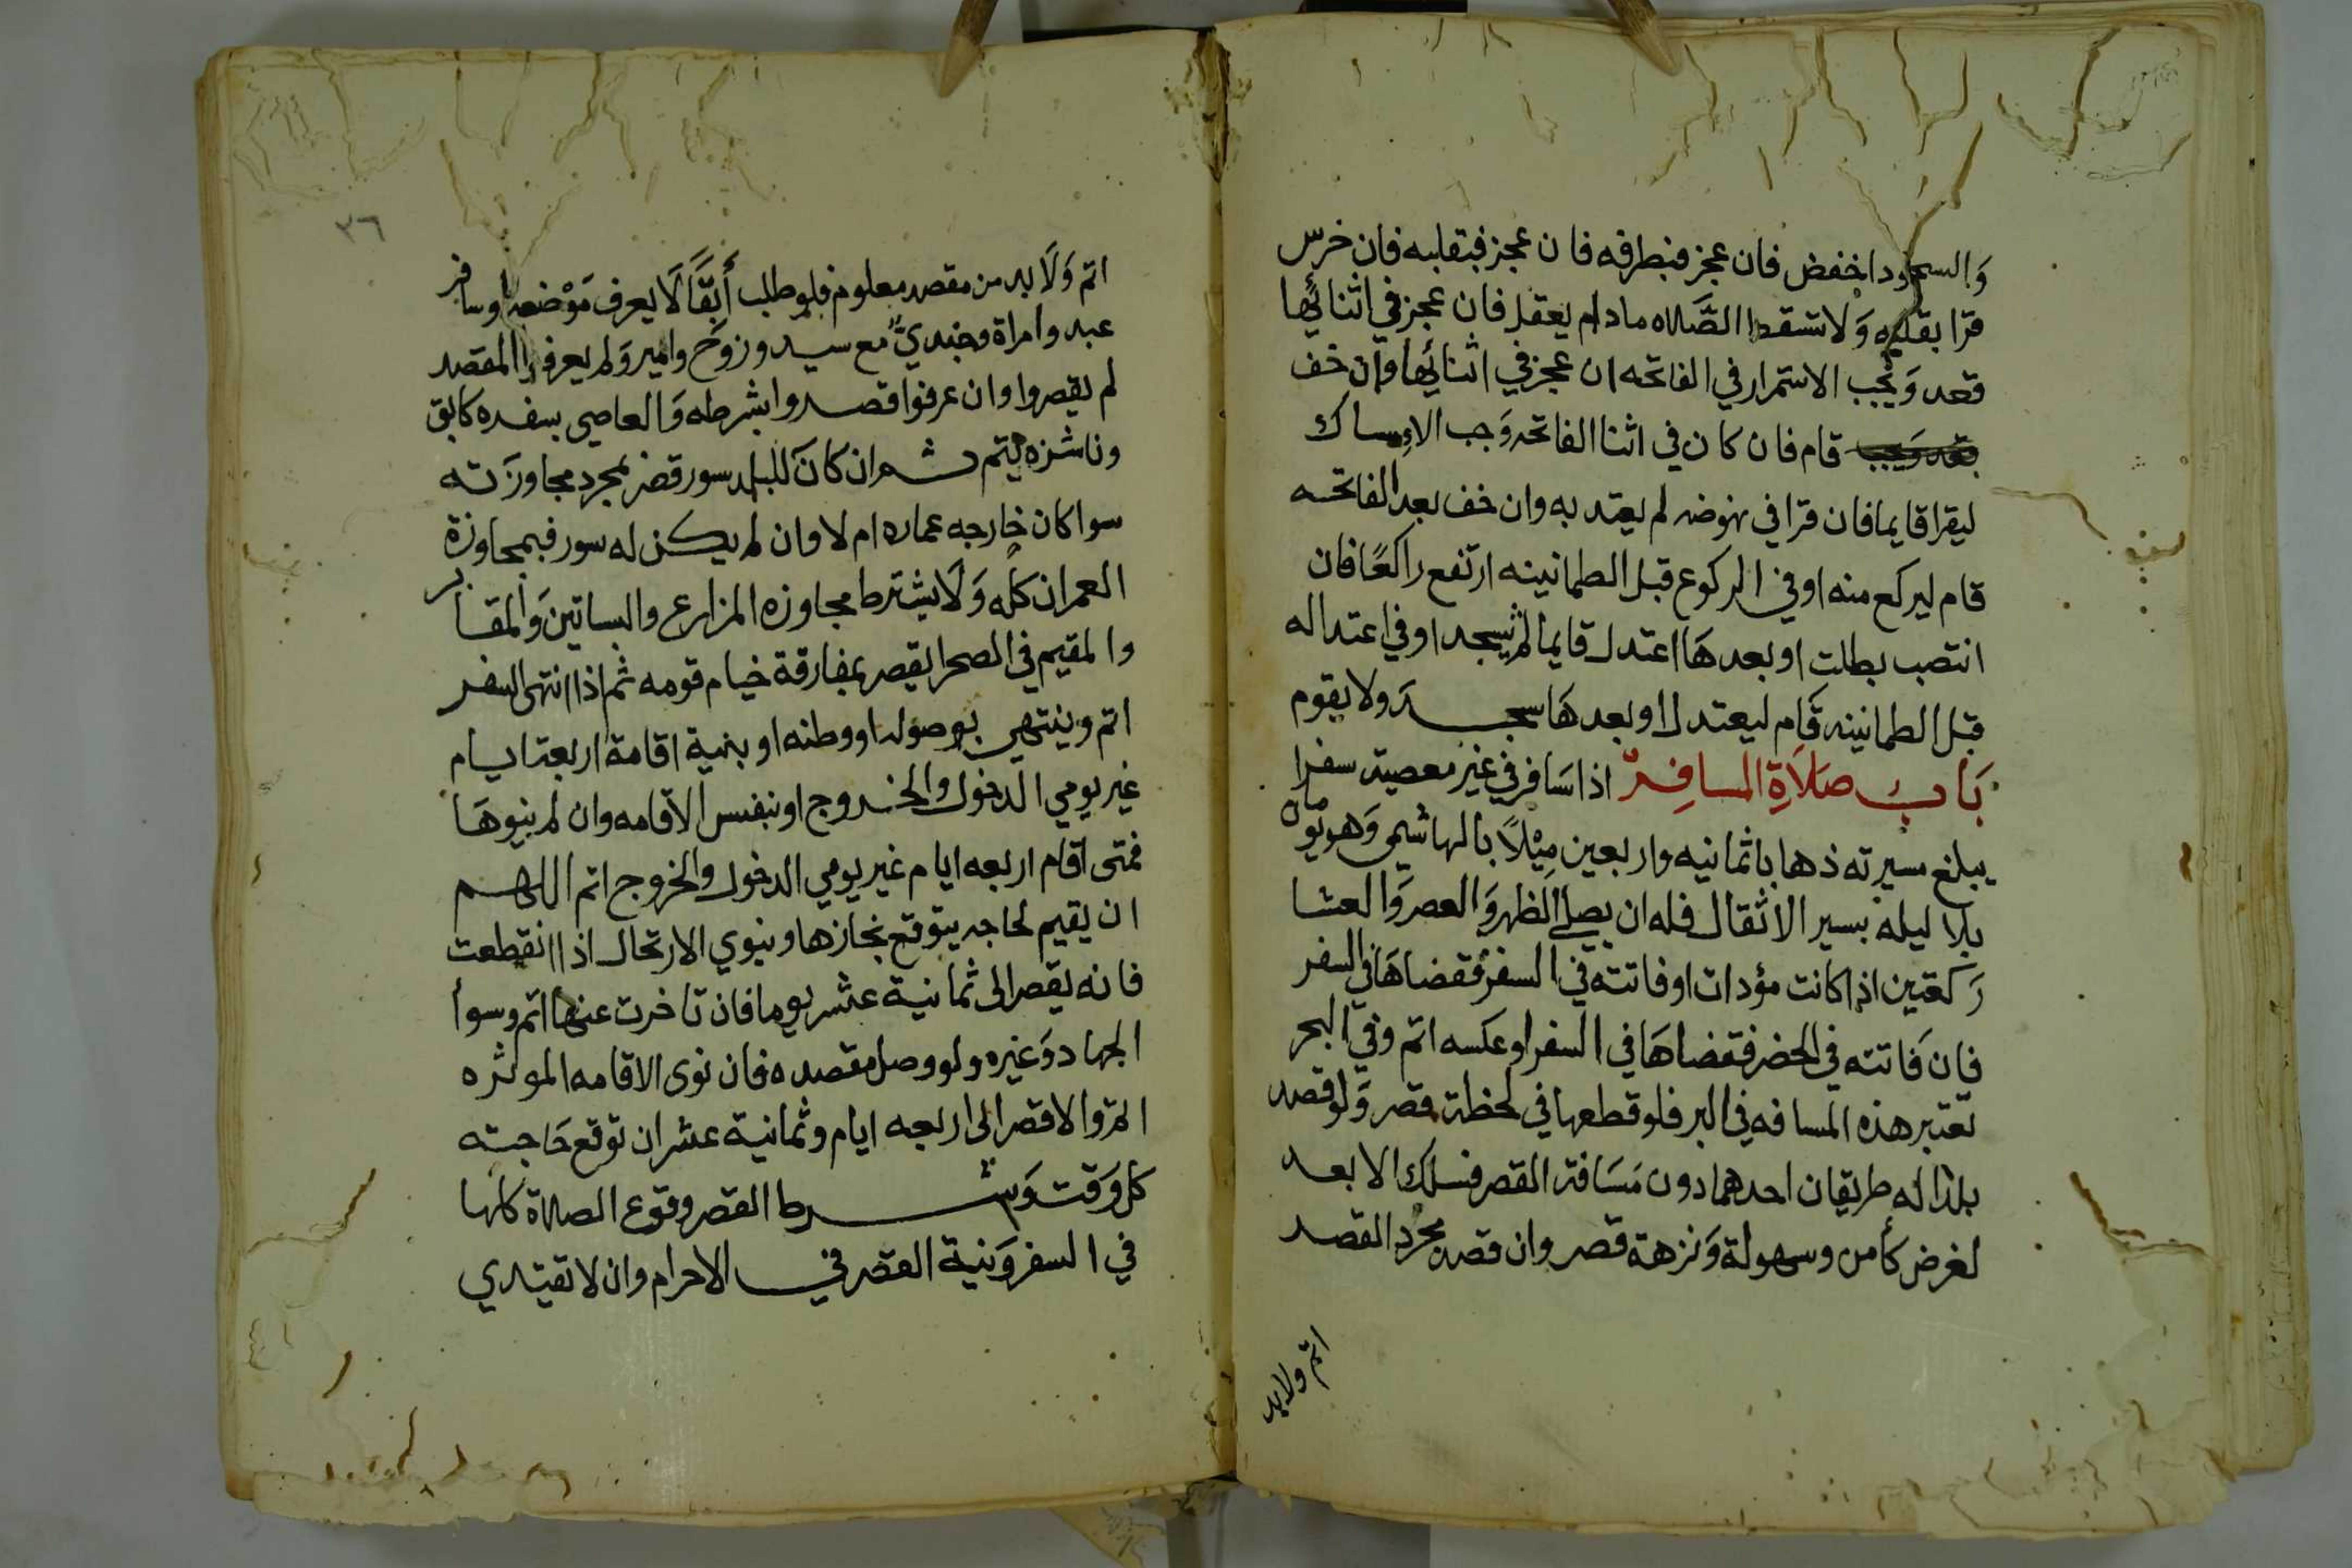 وَالسجود اخفض فان عجز فبطرفه فان عجز فبقلبه فان خرس
قرا بقلبه وَلا تسقط الصَّلاه مادام يعقل فان عجز في اثنائِها
قعد وَيجب الاستمرار في الفاتحه ان عجز في اثنائِها وان خف
قام فان كان في اثنا الفاتحه وَجب الاِمساك
ليقرا قايما فان قرا في نهوضه لم يعتد به وان خف بعد الفاتحه
قام ليركع منه او في الركوع قبل الطمانينه ارتفع راكعًا فان
انتصب بطلت او بعدهَا اعتدل قايما ثم يسجد او في اعتداله
قبل الطمانينه قَام ليعتدل او بعدهَا سجد ولا يقوم
بَابُ صَلاَةِ المسافِرِ اذا سَافر في غير معصية سفرا
يبلغ مسيرته ذهابا ثمانيه واربعين مِيْلاً بالهاشمي وَهو يومان
بلا ليله بسير الاثقال فله ان يصلي الظهر وَالعصر وَالعشا
رَكعتين اذا كانت مؤدات او فاتته في السفر فقضاهَا في السفر
فإن فَاتته في الحضر فقضاهَا في السفر او عكسه اتم وَفي البحر
تعتبر هذه المسافه في البر فلو قطعها في لحظة قصر وَلو قصد
بلدا له طريقان احدهما دون مَسَافة القصر فسلك الابعد
لغرض كأمن وسهولة وَنزهة قصر وان قصد مجرد القصد
اتم ولابد
٣٦
اتم وَلَا بد من مقصد معلوم فلو طلب أَبقًّا لَا يعرف مَوْضعه او سافر
عبد وامراة وجندىٌّ مع سيد وزوج وامير وَلم يعرفوا المقصد
لم يقصروا وان عرفوا قصدوا بشرطه وَالعاصي بسفره كابق
وناشزه يتم ثم ان كانَ للبلد سور قصر بمجرد مجاوزَته
سوا كان خارجه عماره ام لا وان لم يكن له سور فبمجاوزة
العمران كله وَلَا يشترط مجاوزه المزارع والبساتين وَالمقابر
والمقيم في الصحرا يقصر بمفارقة خيام قومه ثم اذا انتهى السفر
اتم وينتهي بوصوله او وطنه او بنية اقامة اربعة ايام
غير يومي الدخول والخروج او بنفس الاقامه وان لم ينوهَا
فمتى اقام اربعه ايام غير يومي الدخول والخروج اتم اللهم
ان يقيم لحاجه يتوقع نجازها وينوي الارتحال اذا انقطعت
فانه يقصر الى ثمانية عشر يوما فان تاخرت عنها اتم وسوا
الجهاد وَغيره ولو وصل مقصده فان نوى الاقامه الموثره
اتم والا قصر الى اربعه ايام وثمانية عشر ان توقع حَاجته
كل وَقت وَشرط القصر وقوع الصلاة كلها
في السفر وَنية القصر في الاحرام وان لا تقتدي